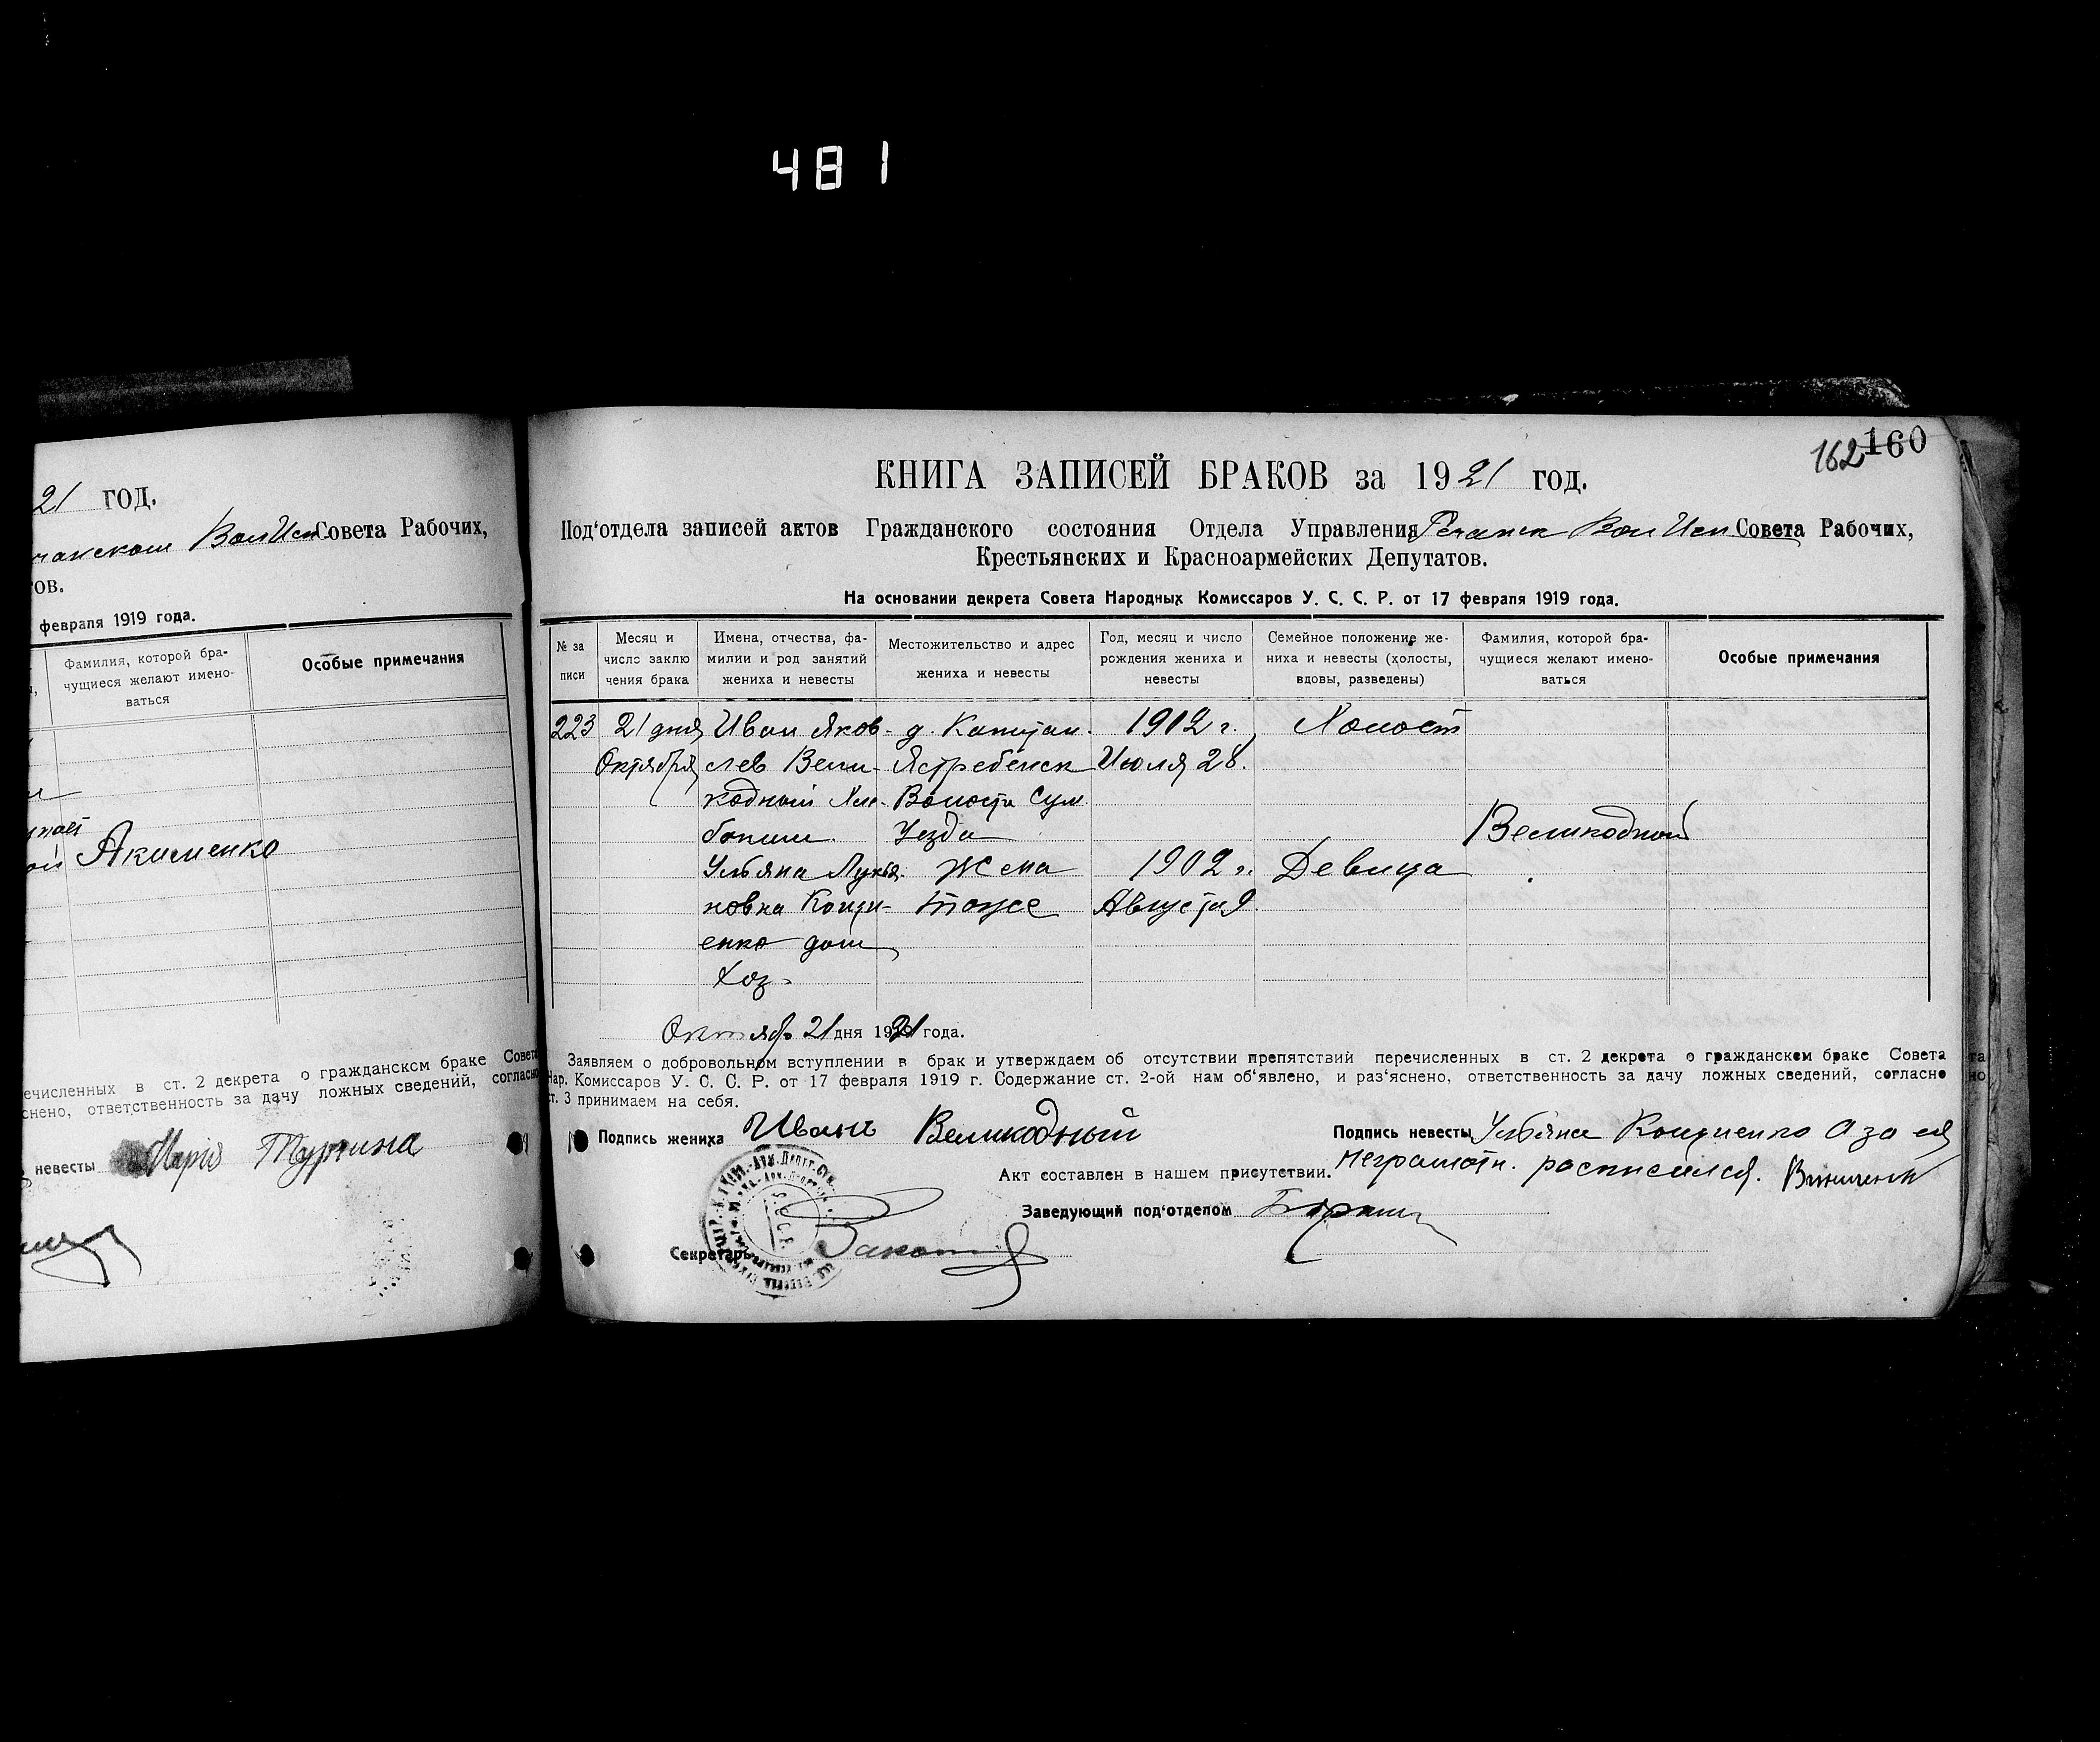 481
21 год.
Совета Рабочих,
ов.
февраля 1919 года.
Фамилия, которой бра-
чущиеся желают имено-
ваться
Особые примечания
Акименко
ечисленных в ст. 2 декрета о гражданском браке Совета
снено, ответственность за дачу ложных сведений, согласно
невесты Мария
162 160
КНИГА ЗАПИСЕЙ БРАКОВ за 1921 год.
Под'отдела записей актов Гражданского состояния Отдела Управления Речанск Вол Исп Совета Рабочих,
Крестьянских и Красноармейских Депутатов.
На основании декрета Совета Народных Комиссаров У. С. С. Р. от 17 февраля 1919 года.
№ за
писи
Месяц и
число заклю
чения брака
Имена, отчества, фа-
милии и род занятий
жениха и невесты
Местожительство и адрес
жениха и невесты
Год, месяц и число
рождения жениха и
невесты
Семейное положение же-
ниха и невесты (холосты,
вдовы, разведены)
Фамилия, которой бра-
чущиеся желают имено-
ваться
Особые примечания
223 21 дня Иван Яков- д. Капитан. 1902 г. Холост
Октября лев Вели- Ястребенск Июля 28.
кодный Хле- Волости Сум.
бопаш. Уезда Великодной
Ульяна Лукья- Жена 1902 г. Девица
новна Кощи- тоже Августа 9.
енко дом
Хоз.
Октябр 21 дня 1921 года.
Заявляем о добровольном вступлении в брак и утверждаем об отсутствии препятствий перечисленных в ст. 2 декрета о гражданском браке Совета
Нар. Комиссаров У. С. С. Р. от 17 февраля 1919 г. Содержание ст. 2-ой нам об'явлено, и раз'яснено, ответственность за дачу ложных сведений, согласно
ст. 3 принимаем на себя.
Подпись жениха Иван Великодный
Подпись невесты Ульяна Кощиенко а за ея
Акт составлен в нашем присутствии. неграмотн. росписался.
Заведующий под'отделом
Секретарь